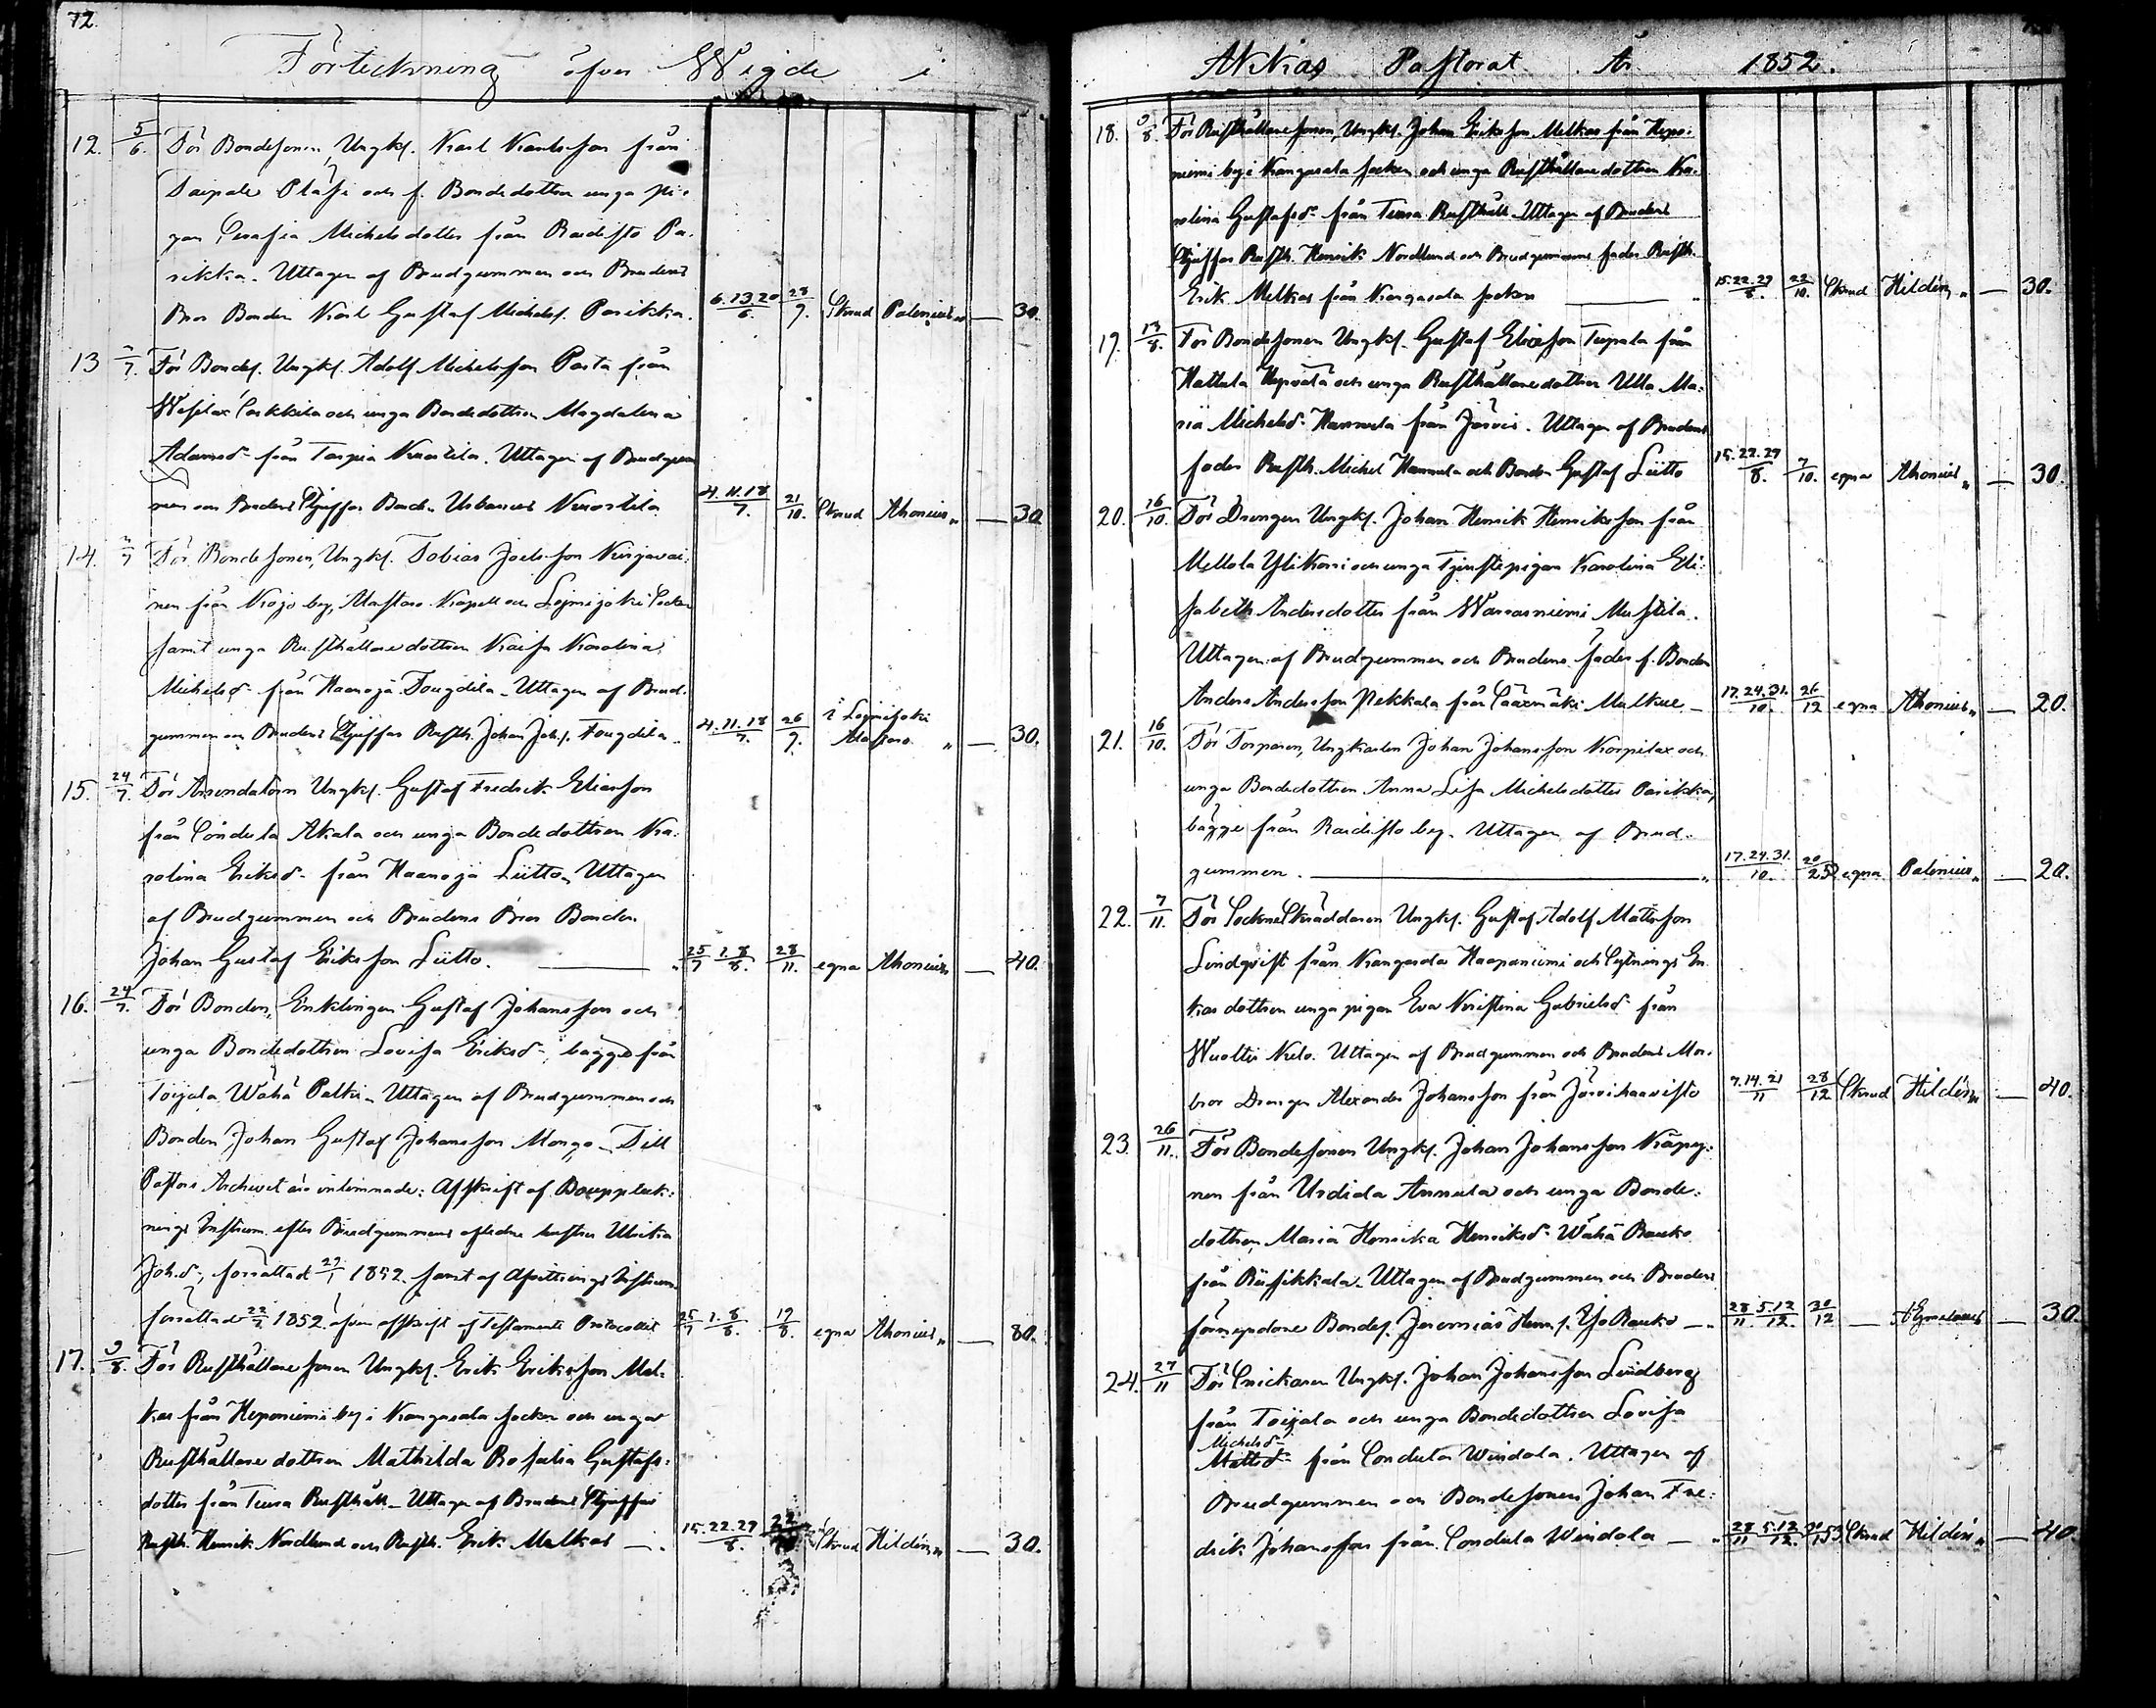 72.
Förteckning öfver Wigde i
12. 5/6. För Bondesonen, Ungk. Karl Karlsson från
Saipale Plåsi och f. Bondedottren unga pi-
gan Serafia Michelsdotter från Raidisto Pa-
rikka. Uttagen af Brudgummen och Brudens
Bror Bonden Karl Gustaf Michels. Parikka. 6.13.20/6. 28/9. Skrud Palenius „ — 30.
13 /7. För Bondes. Ungk. Adolf Michelsson Pasta från
Wesilax Sorkkila och unga Bondedottren Magdalena
Adamsd. från Tarpia Nuortila. Uttagen af Brudgum
men och Brudens Styffar Bond. Urbanus Nuortila 4.11.18/7. 21/10. Skrud Ahonius „ — 30
14. /7 För Bondesonen, Ungk. Tobias Joelsson Kurjavai-
nen från Kojo by, Alastaro Kapell och Loimijoki Socken
samt unga Rusthållaredottren Kaisa Karolina
Michelsd. från Haaroja Fougdila. Uttagen af Brud-
gummen och Brudens Styffar Rusth. Johan Joh.s. Fougdila. 4.11.18/7. 26/9. i Loimijoki Alastaro „ — 30.
15. 24/7. För Arrendatorn Ungk. Gustaf Fredrik Eliasson
från Sondula Akala och unga Bondedottren Ka-
rolina Eriksd. från Haaroja Liitto. Uttagen
af Brudgummen och Brudens Bror Bonden
Johan Gustaf Eriksson Liitto. — „ 25/7 1.8/8. 28/11. egna Ahonius „ — 40.
16. 24/7. För Bonden, Enklingen Gustaf Johansson och
unga Bondedottren Lovisa Eriksd., bägge från
Toijala Wähä Palki. Uttagen af Brudgummen och
Bonden Johan Gustaf Johansson Mongo. Till
Pastors Archivet äro inlemnade: Afskrift af Bouppteck-
nings Instrum. efter Brudgummens aflidne hustru Ulrika
Joh.d., förrättad 1852. samt af Afvittrings Instrum.
förrättad 1852. äfven afskrift af Testaments Protocollet 25/7 1.8/8. 19/8. egna Ahonius „ — 80.
17. /8. För Rusthållaresonen Ungk. Erik Eriksson Mel-
kas från Heponiemi by i Kangasala socken och unga
Rusthållaredottren Mathilda Rosalia Gustafs-
dotter från Tursa Rusthåll. Uttagen af Brudens Styffar
Rusth. Henrik Nordlund och Rusth. Erik Melkas —. 15.22.29/8. Skrud Hildén „ — 30.
Akkas Pastorat År 1852.
18. /8. För Rusthållaresonen, Ungk. Johan Eriksson Melkas från Hepo-
niemi by i Kangasala socken och unga Rusthållaredottren Ka-
rolina Gustafsd. från Tursa Rusthåll. Uttagen af Brudens
Styffar Rusth. Henrik Nordlund och Brudgummens fader Rusth.
Erik Melkas från Kangasala socken — „ 15.22.29/8. 22/10. Skrud Hildén „ — 30.
19. 13/8. För Bondesonen Ungk. Gustaf Eliasson Tuppala från
Hattula och unga Rusthållaredottren Ulla Ma-
ria Michelsd. Hannula från Järvis. Uttagen af Brudens
fader Rusth. Michel Hannula och Bonden Gustaf Liitto 15.22.29/8. 7/10. egna Ahonius „ — 30.
20. 16/10. För Drengen Ungk. Johan Henrik Henriksson från
Mellola Ylikorri och unga Tjenstepigan Karolina Eli-
sabeth Andersdotter från Warrasniemi Mustila.
Uttagen af Brudgummen och Brudens fader f. Bonden
Anders Andersson Pekkala från Sääxmäki Mälkue — 17.24.31./10. 26/12 egna Ahonius „ — 20.
21. 16/10. För Torparen, Ungkarlen Johan Johansson Korpilax och
unga Bondedottren Anna Lisa Michelsdotter Parikka,
bägge från Raidisto by. Uttagen af Brud-
gummen. — „ 17.24.31./10. egna Palenius „ — 20.
22. 7/11. För Socknes Skräddaren Ungk. Gustaf Adolf Matsson
Lindqvist från Kangasala Haapaniemi och Sytnings En-
kas dottren unga pigan Eva Kristina Gabrielsd. från
Wuoltis Kulo. Uttagen af Brudgummen och Brudens Mor-
bror Drengen Alexander Johansson från Järvihaavisto 7.14.21/11 28/12 Skrud Hildén „ — 40.
23. 26/11. För Bondesonen Ungk. Johan Johansson Käpry-
nen från Urdiala Annula och unga Bonde-
dottren, Maria Henrika Henriksd. Wähä Rauko
från Riisikkala. Uttagen af Brudgummen och Brudens
förmyndare Bondes. Jeremias Henr.s. Yso Rauko — 28/11 5.12/12. 30/12 — — 30.
24. 27/11 För Snickaren Ungk. Johan Johansson Lindberg
från Toijala och unga Bondedottren Lovisa
Michelsd.
Mattsd. från Sondula Windala. Uttagen af
Brudgummen och Bondesonen Johan Fre-
drik Johansson från Sondula Windala — „ 28/11 5.12/12. Skrud Hildén „ — 40.